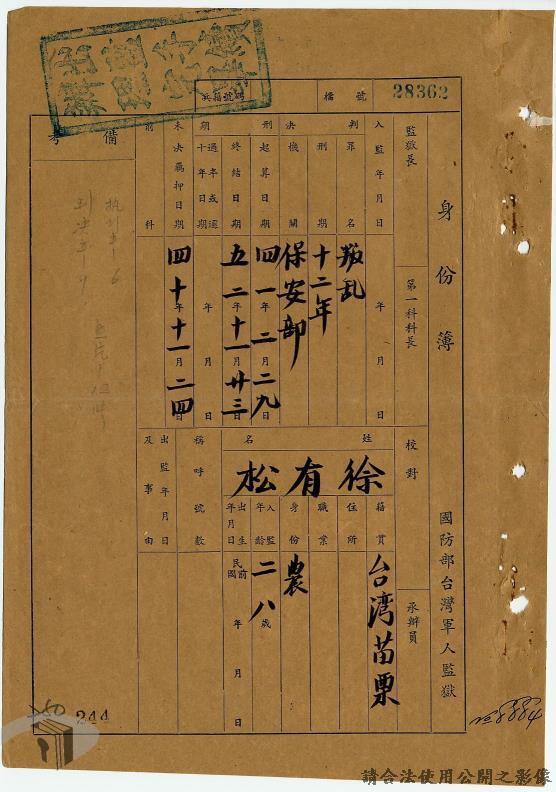 28362
檔號
兵籍號碼
身份簿
國防部台灣軍人監獄
監獄長
第一科科長
校對
承辦員
入監年月日 年 月 日
判罪名 叛乱
刑期 十二年
判決機關 保安部
刑期起算日期 四一年二月二九日
終結日期 五二年十一月廿三日
過半或逾十年日期 年 月 日
未決羈押日期 四十年十一月二四日
前科
備考
姓名 徐有松
籍貫 台湾苗栗
住所
職業
身份 農
入監年齡 二八歲
出生年月日 民國前 年 月 日
稱呼號數
出監年月日及事由
244
請合法使用公開之影像